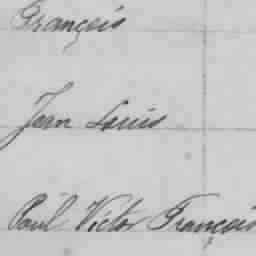 François
Jean Louis
Paul Victor François